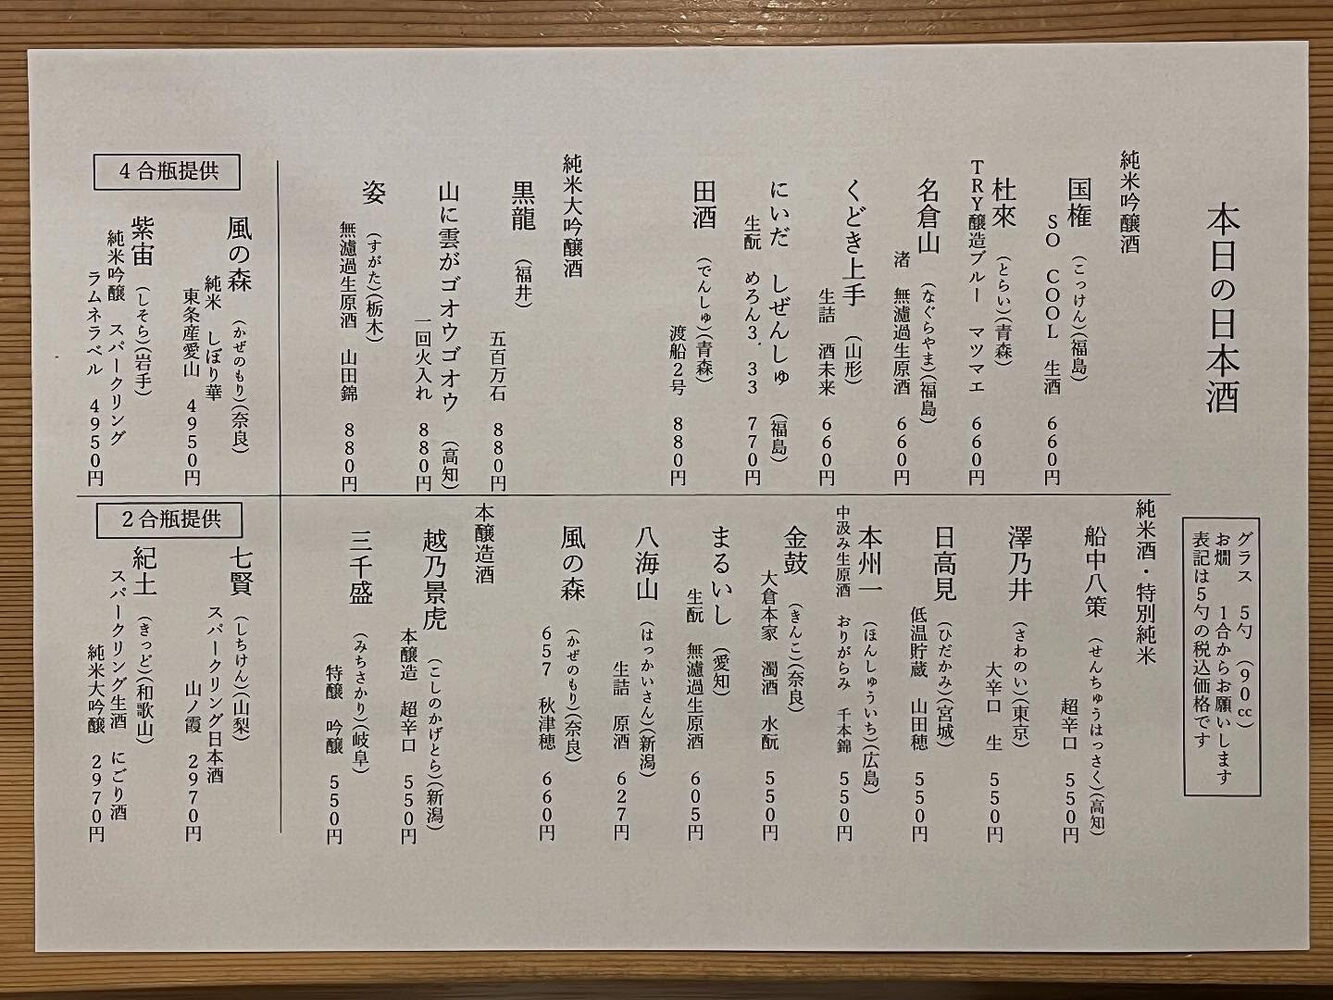 本日の日本酒
グラス 5勺 (90cc)
お燗 1合からお願いします
表記は5勺の税込価格です
純米吟醸酒
国権 (こっけん)(福島)
SO COOL 生酒 660円
杜來 (とらい)(青森)
TRY醸造ブルー マツマエ 660円
名倉山 (なぐらやま)(福島)
渚 無濾過生原酒 660円
くどき上手 (山形)
生詰 酒未来 660円
にいだ しぜんしゅ (福島)
生酛 めろん3.33 770円
田酒 (でんしゅ)(青森)
渡船2号 880円
純米大吟醸酒
黒龍 (福井)
五百万石 880円
山に雲がゴオウゴオウ (高知)
一回火入れ 880円
姿 (すがた)(栃木)
無濾過生原酒 山田錦 880円
純米酒・特別純米
船中八策 (せんちゅうはっさく)(高知)
超辛口 550円
澤乃井 (さわのい)(東京)
大辛口 生 550円
日高見 (ひだかみ)(宮城)
低温貯蔵 山田穂 550円
本州一 (ほんしゅういち)(広島)
中汲み生原酒 おりがらみ 千本錦 550円
金鼓 (きんこ)(奈良)
大倉本家 濁酒 水酛 550円
まるいし (愛知)
生酛 無濾過生原酒 605円
八海山 (はっかいさん)(新潟)
生詰 原酒 627円
風の森 (かぜのもり)(奈良)
657 秋津穂 660円
本醸造酒
越乃景虎 (こしのかげとら)(新潟)
本醸造 超辛口 550円
三千盛 (みちさかり)(岐阜)
特醸 吟醸 550円
4合瓶提供
風の森 (かぜのもり)(奈良)
純米 しぼり華
東条産愛山 4950円
紫宙 (しそら)(岩手)
純米吟醸 スパークリング
ラムネラベル 4950円
2合瓶提供
七賢 (しちけん)(山梨)
スパークリング日本酒
山ノ霞 2970円
紀土 (きっど)(和歌山)
スパークリング生酒 にごり酒
純米大吟醸 2970円